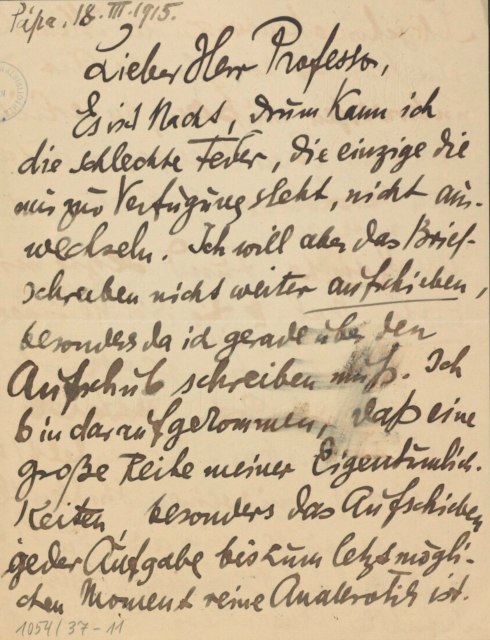 Pápa, 18. III. 1915.
Lieber Herr Professor,
Es ist Nacht, drum kann ich
die schlechte Feder, die einzige die
mir zur Verfügung steht, nicht aus-
wechseln. Ich will aber das Brief-
schreiben nicht weiter aufschieben,
besonders da ich gerade über den
Aufschub schreiben muß. Ich
bin darauf gekommen, daß eine
große Reihe meiner Eigentümlich-
keiten, besonders das Aufschieben
jeder Aufgabe bis zum letztmögli-
chen Moment reine Analerotik ist.
1054/37-11